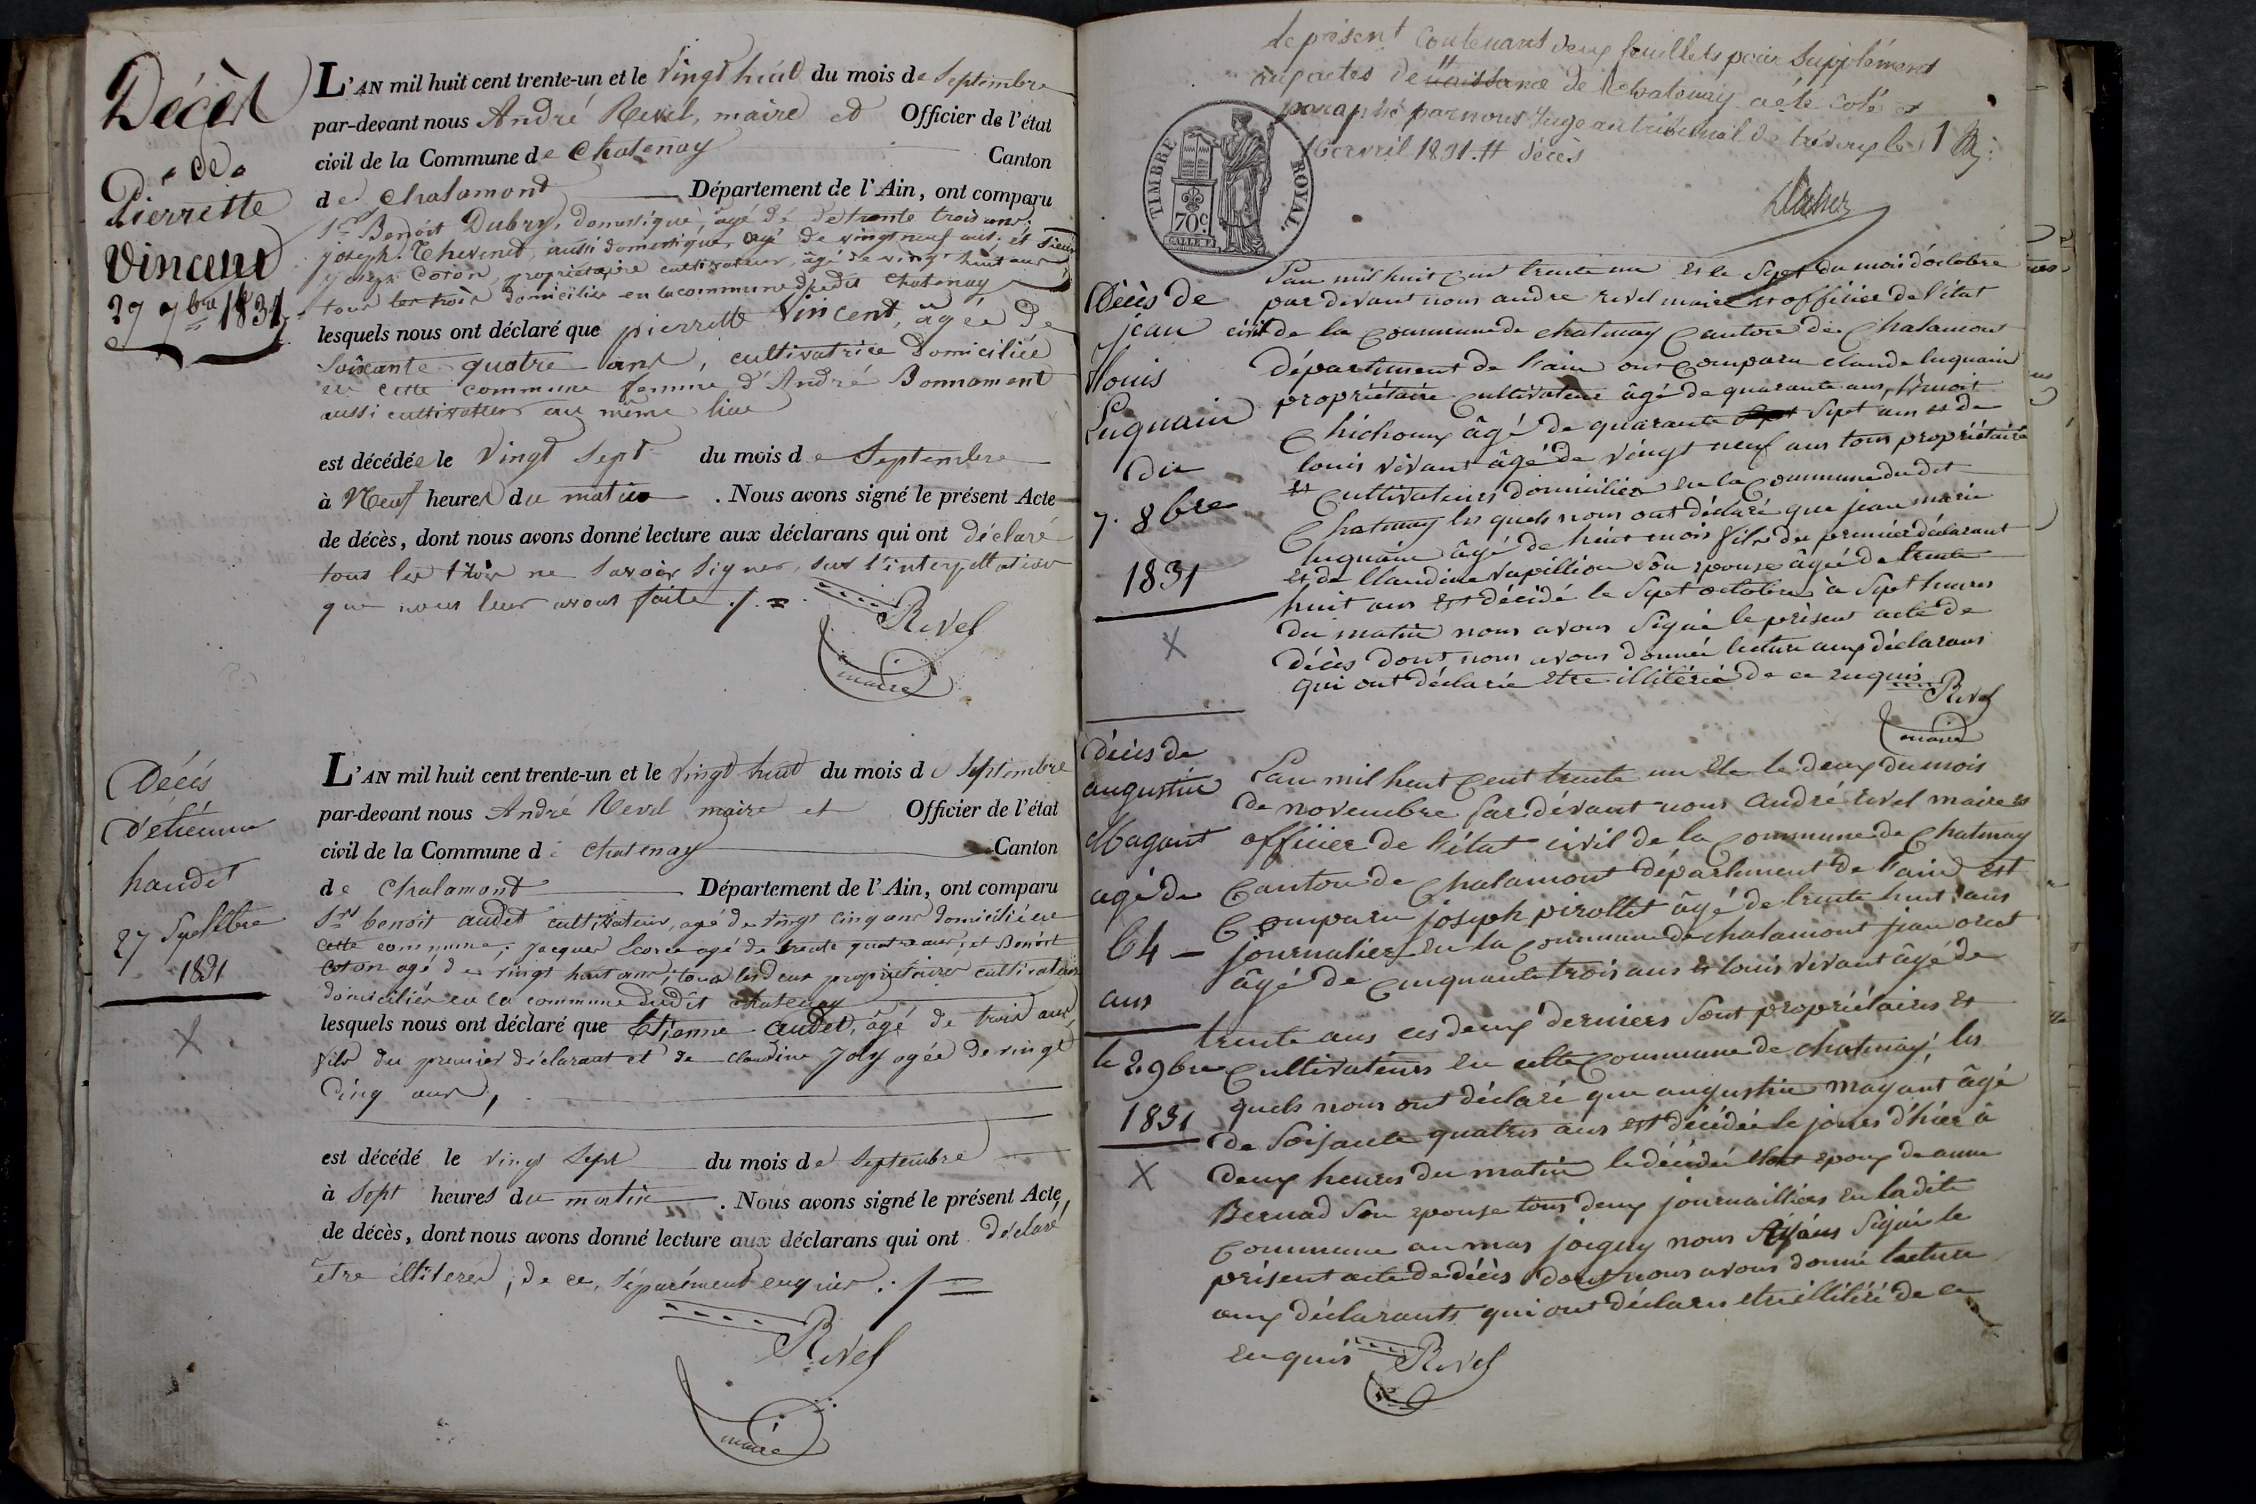 Décès
de
Pierrette
Vincent
27 7bre 1831
L'AN mil huit cent trente-un et le Vingt huit du mois de Septembre
par-devant nous André Revel, maire et Officier de l'état
civil de la Commune de Chatenay Canton
de Chalamont Département de l'Ain, ont comparu
Srs Benoit Dubry, domestique, âgé de trente trois ans,
joseph Thevenet, aussi domestique, agé de vingt neuf ans, et Sieur
Coton, propriétaire cultivateur, âgé de vingt huit ans
tous les trois domiciliés en la commune dudit Chatenay
lesquels nous ont déclaré que pierrette Vincent, âgée de
Soixante quatre ans, cultivatrice domiciliée
en cette commune femme d'André Bonnament
aussi cultivateur au même lieu
est décédée le Vingt Sept du mois de Septembre
à Neuf heures du matin . Nous avons signé le présent Acte
de décès, dont nous avons donné lecture aux déclarans qui ont déclaré
tous les trois ne Savoir Signer, sur l'interpellation
que nous leur avons faite ./.
Revel
maire
Décés
d'etienne
haudet
27 Septebre
1831
X
L'AN mil huit cent trente-un et le Vingt huit du mois de Septembre
par-devant nous André Revel maire et Officier de l'état
civil de la Commune de Chatenay Canton
de Chalamont Département de l'Ain, ont comparu
Srs benoit audet cultivateur, agé de vingt cinq ans domicilié en
cette commune; jacques agé de trente quatre ans; et Benoit
Coton agé de vingt huit ans, tous les deux propriétaires cultivateurs
domiciliés en la commune dudit chatenay
lesquels nous ont déclaré que Etienne Audet, âgé de trois ans,
fils du premier déclarant et de claudine Joly agée de vingt
Cinq ans,
est décédé le vingt Sept du mois de Septembre
à Sept heures du matin . Nous avons signé le présent Acte
de décès, dont nous avons donné lecture aux déclarans qui ont déclaré
être illiterés, de ce, séparément enquis ./.
Revel
maire
Le présent contenant deux feuillets pour Supplément
aux actes de naissance de Chatenay a été coté et
paraphé par nous Juge au tribunal de trévoux le
16 avril 1831. # décès
1
TIMBRE ROYAL.
70c
Décès de
jean
louis
Luquain
du
7. 8bre
1831
X
L'an mil huit cent trente un et le Sept du mois d'octobre
par devant nous andre revel maire et officier de l'état
civil de la Commune de chatenay Canton de Chalamont
département de l'ain ont Comparu claude luquain
propriétaire Cultivateur âgé de quarante ans, benoit
Chichoux âgé de quarante Sept ans et de
louis vivant âgé de vingt neuf ans tous propriétaire
et Cultivateurs domiciliés en la Commune dudit
Chatenay les quels nous ont déclaré que jean marie
luquain âgé de huit mois fils du premier déclarant
et de Claudine vapillion son epouse âgée de trente
huit ans est décédé le Sept octobre à Sept heures
du matin nous avons Signé le présent acte de
décès dont nous avons donnée lecture aux déclarans
qui ont déclaré être illitéré de ce enquis
Revel
maire
décès de
augustin
Magant
agé de
64
ans
le 2 9bre
1831
X
L'an mil huit Cent trente un et le deux du mois
de novembre par dévant nous André revel maire et
officier de l'état civil de la Commune de Chatenay
Canton de Chalamont département de l'ain est
Comparu joseph pirollet âgé de trente huit ans
journalier en la Commune de chalamont jean
âgé de Cinquante trois ans et louis vivant âgé de
trente ans ces deux derniers Sont propriétaires et
Cultivateurs en cette Commune de chatenay, les
quels nous ont déclaré que augustin magant âgé
de Soisante quatres ans est décédé le jours d'hier à
deux heures du matin le décédé etant epoux de anne
Bernad Son epouse tous deux journailliers en ladite
Commune au mas joiguy nous Ayans Signé le
présent acte de décès dont nous avons donné lecture
aux déclarants qui ont déclarés etre illitéré de ce
enquis Revel